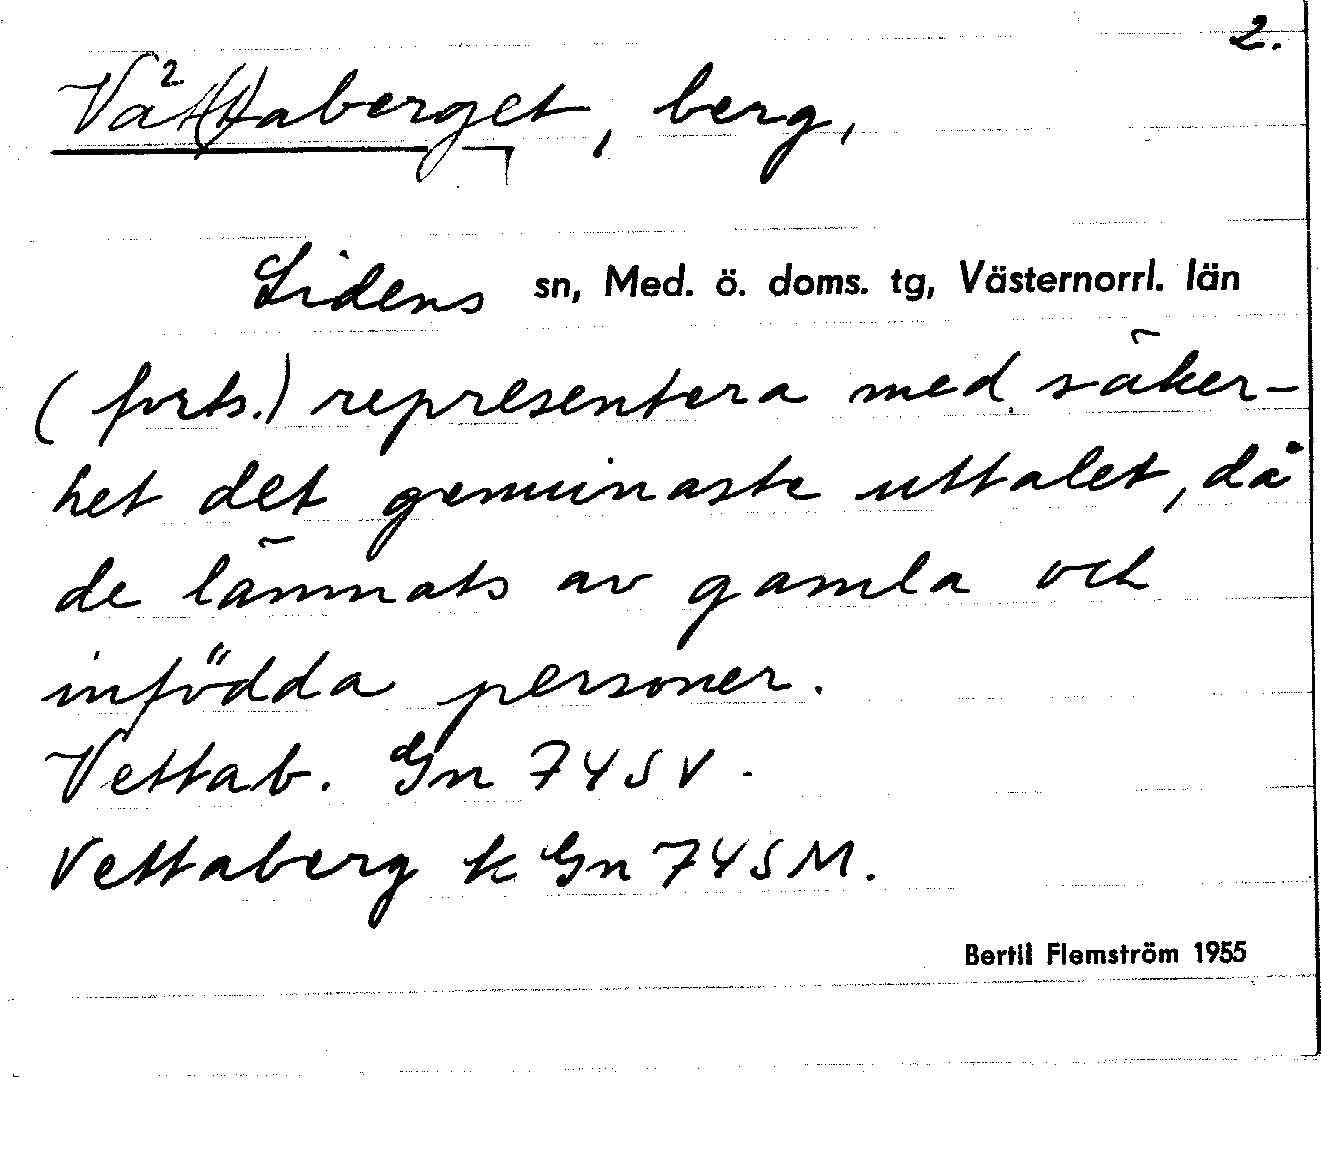 2.
Vät(t)aberget, berg,
Lidens sn, Med. ö. doms. tg, Västernorrl. län
(forts.) representera med säker-
het det genuinaste uttalet, då
de lämnats av gamla och
infödda personer.
Vettab. Gn 74 SV.
Vettaberg k Gn 74 SM.
Bertil Flemström 1955